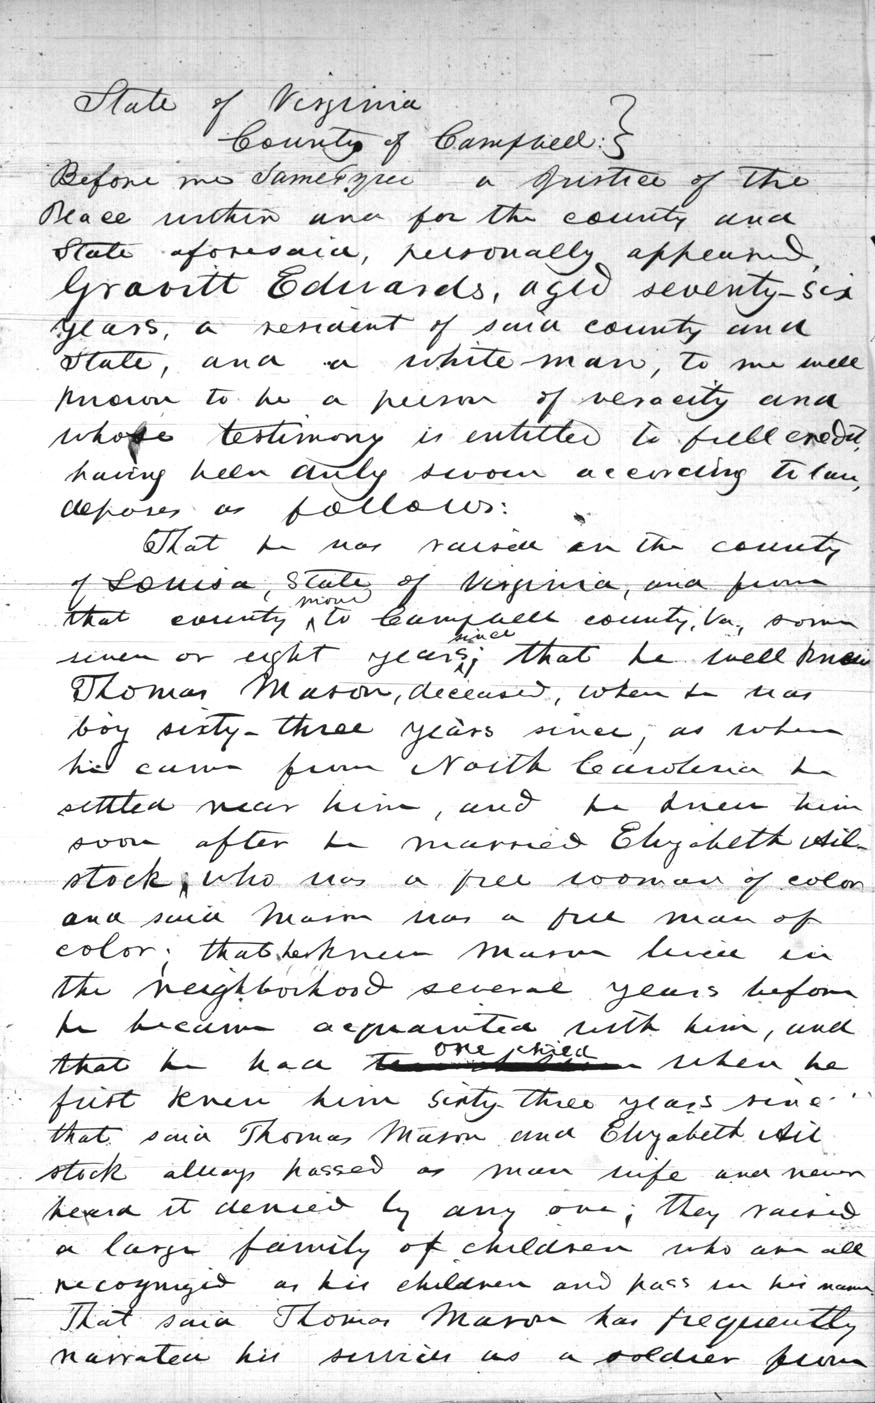 State of Virginia
County of Campbell: }
Before me a Justice of the
Peace within and for the county and
State aforesaid, personally appeared,
Gravitt Edwards, aged seventy-six
years, a resident of said county and
State, and a white man, to me well
known to be a person of veracity and
whose testimony is entitled to full credit,
having been duly sworn according to law,
deposes as follows:
That he was raised in the county
of Louisa, State of Virginia, and from
that county move to Campbell county, Va, some
seven or eight years since; that he well knew
Thomas Mason, deceased, when he was
boy sixty-three years since, as when
he came from North Carolina he
settled near him, and he knew him
soon after he married Elizabeth Ail-
stock, who was a free woman of color
and said Mason was a free man of
color; that he knew Mason lived in
the neighborhood several years before
he became acquainted with him, and
that he had one child when he
first knew him sixty three years since
that said Thomas Mason and Elizabeth Ail
stock always passed as man wife and never
heard it denied by any one; they raised
a large family of children who are all
recognized as his children and pass in his name.
That said Thomas Mason has frequently
narrated his services as a soldier from